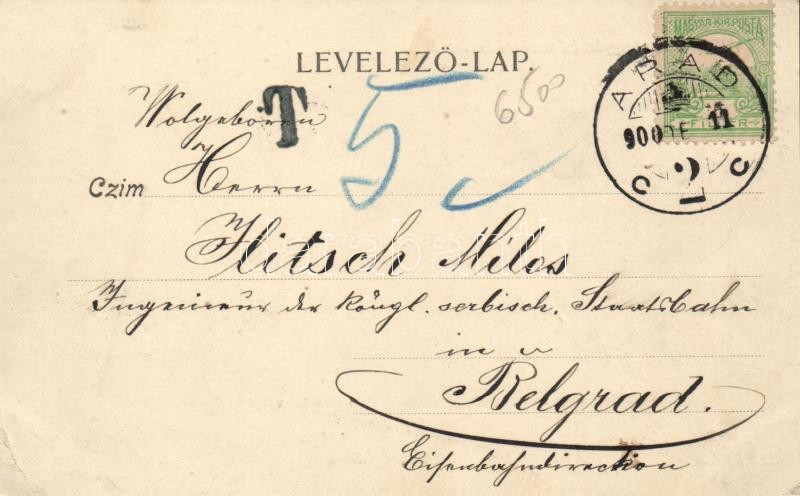 MAGYAR KIR. POSTA
LEVELEZŐ-LAP.
ARAD
FILLÉR
900 DE 11
6500
T
5
Wolgeboren
Czim Herrn
Ilitsch Milos
Ingenieur der köngl. serbisch. Staatsbahn
in
Belgrad.
Eisenbahndirection